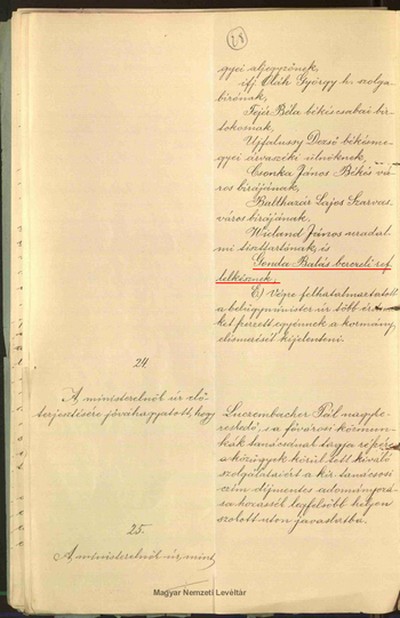 28
gyei aljegyzőnek,
ifj Oláh György h. szolga-
bírónak,
Fejér Béla békéscsabai bir-
tokosnak,
Ujfalussy Dezső békésme-
gyei árvaszéki ülnöknek,
Csonka János Békés vá-
ros birájának,
Balthazár Lajos Szarvas
város birájának,
Wieland János uradal-
mi tiszttartónak, és
Gonda Balás bereczli ref
lelkésznek,
E) Végre felhatalmaztatott
a belügyminister úr több érde-
ket szerzett egyénnek a kormány
elismerését kijelenteni.
24.
A ministerelnök úr elő-
terjesztésére jóváhagyatott, hogy
Pál nagyke-
reskedő, s a fővárosi közmun-
kák tanácsának tagja részére
a közügyek körül tett kiváló
szolgálataiért a kir. tanácsosi
czím díjmentes adományozá-
sa hozassék legfelsőbb helyen
szokott uton javaslatba.
25.
A ministerelnök úr, mint
Magyar Nemzeti Levéltár